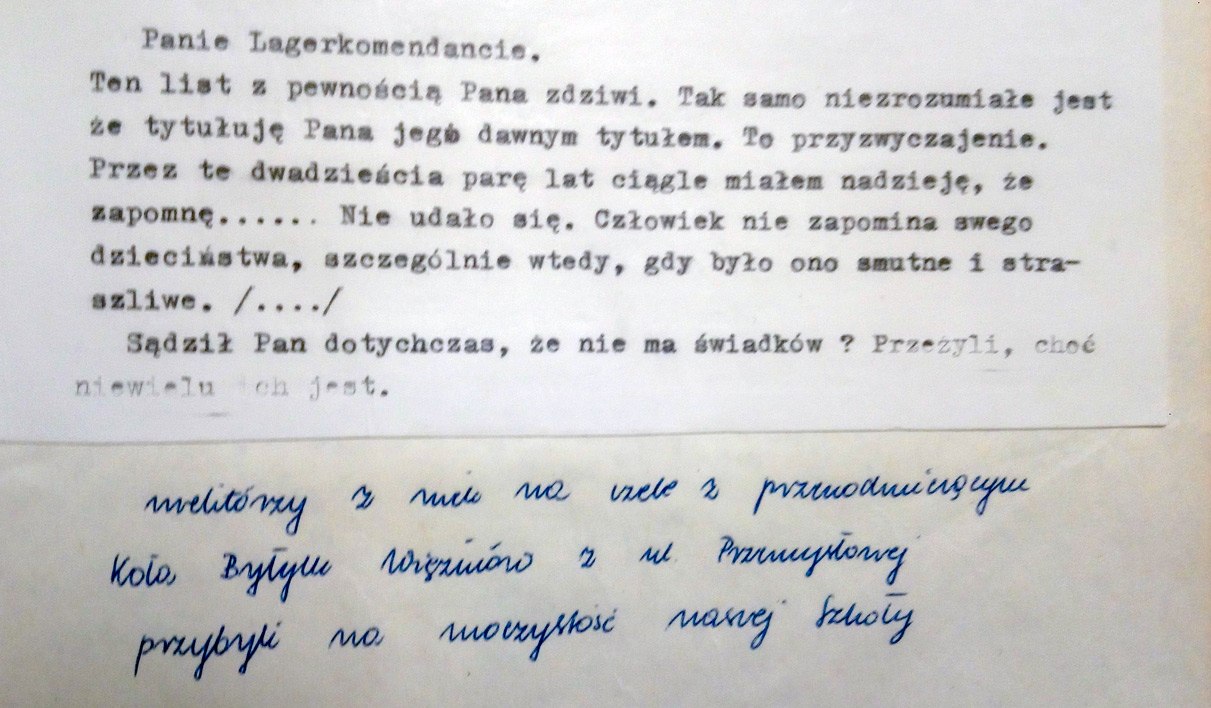 Panie Lagerkomendancie.
Ten list z pewnością Pana zdziwi. Tak samo niezrozumiałe jest
że tytułuję Pana jego dawnym tytułem. To przyzwyczajenie.
Przez te dwadzieścia parę lat ciągle miałem nadzieję, że
zapomnę...... Nie udało się. Człowiek nie zapomina swego
dzieciństwa, szczególnie wtedy, gdy było ono smutne i stra-
szliwe. /..../
Sądził Pan dotychczas, że nie ma świadków ? Przeżyli, choć
niewielu ich jest.
niektórzy z nich na czele z przewodniczącym
Koła Byłych Więźniów z ul. Przemysłowej
przybyli na uroczystość naszej Szkoły